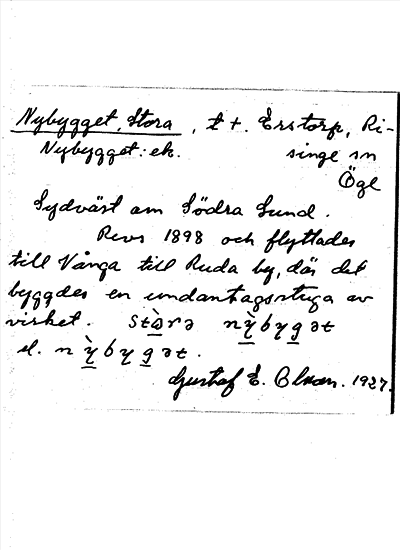 Nybygget, Stora, t t. Erstorp, Ri-
Nybygget: ek. singe sn
Ögl
Sydväst om Södra Lund.
Revs 1898 och flyttades
till Vånga till Ruda by, där det
byggdes en undantagsstuga av
virket. stɷ̀rə nỳbygət
el. nỳbygət.
Gustaf E. Olsson. 1927.